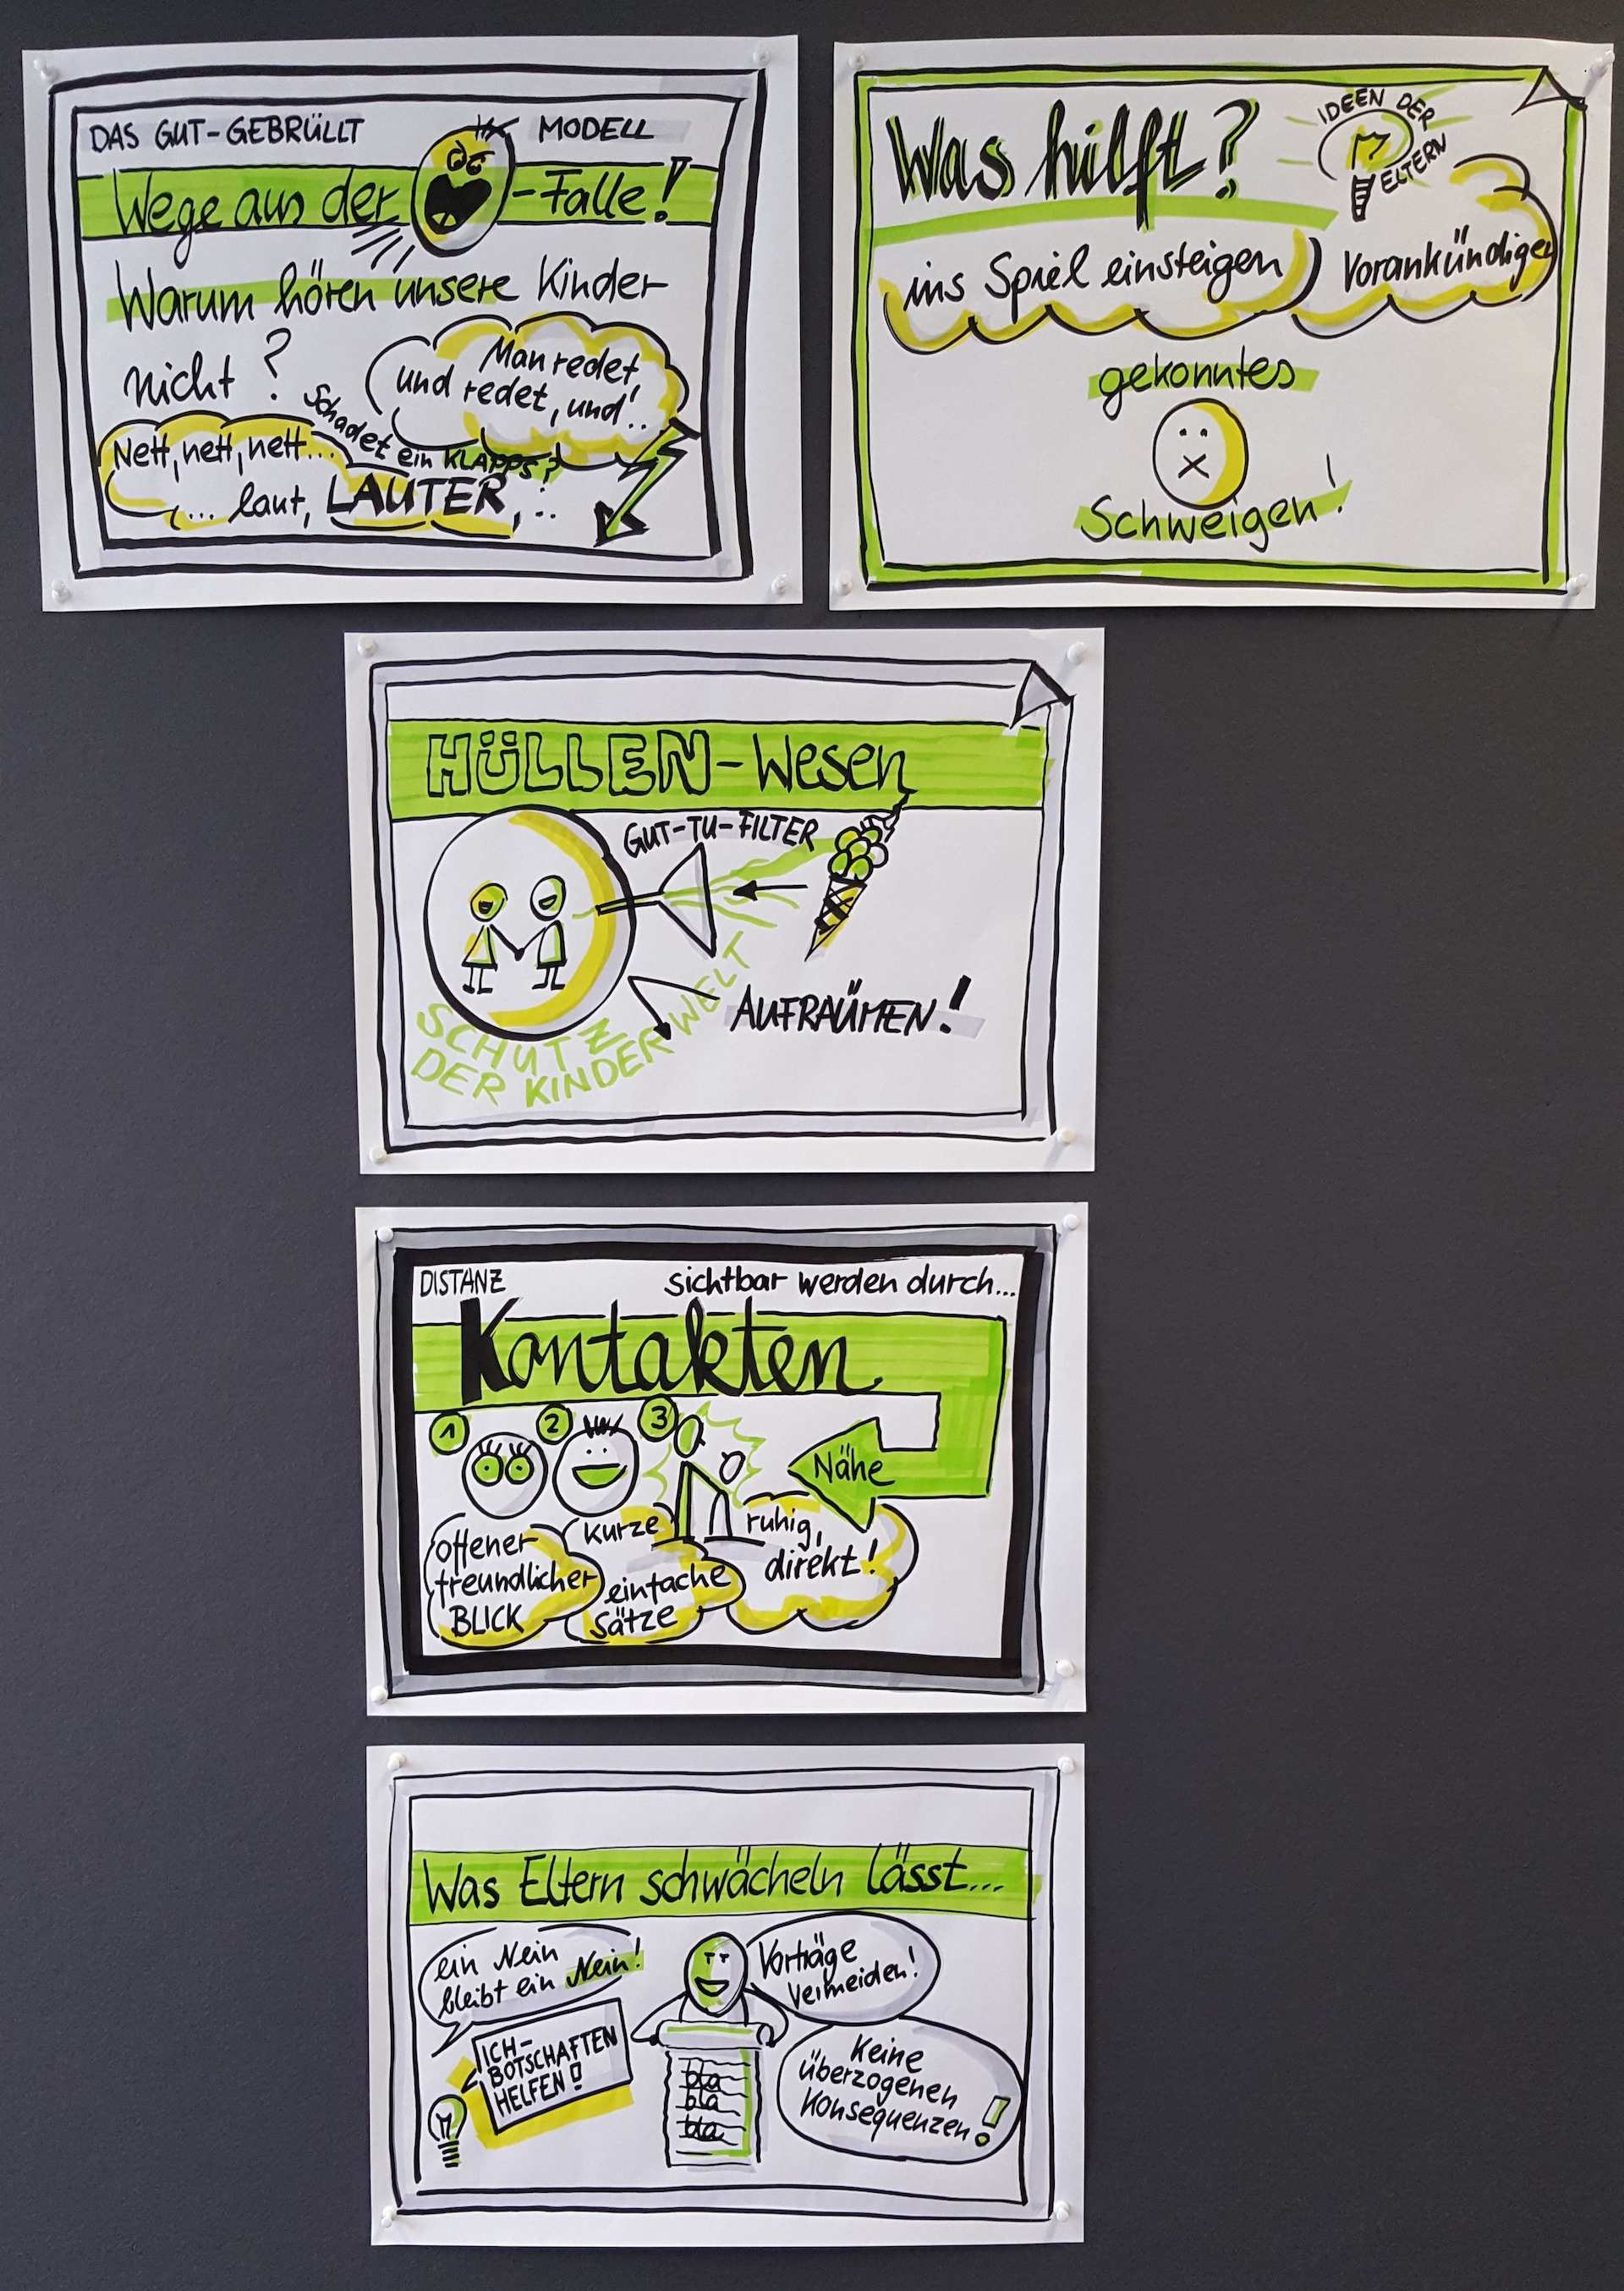 DAS GUT-GEBRÜLLT MODELL
Wege aus der -Falle!
Warum hören unsere Kinder
nicht?
Man redet
und redet, und...
Schadet ein KLAPPS?
Nett, nett, nett...
... laut, LAUTER, ...
Was hilft?
IDEEN DER
ELTERN
ins Spiel einsteigen
Vorankündigen
gekonntes
Schweigen!
HÜLLEN-Wesen
GUT-TU-FILTER
AUFRAÜMEN!
SCHUTZ
DER KINDERWELT
DISTANZ
sichtbar werden durch...
Kontakten
1 2 3
Nähe
offener
freundlicher
BLICK
kurze
einfache
Sätze
ruhig,
direkt!
Was Eltern schwächeln lässt...
ein Nein
bleibt ein Nein!
ICH-
BOTSCHAFTEN
HELFEN!
bla
bla
bla
Vorträge
vermeiden!
Keine
überzogenen
Konsequenzen!